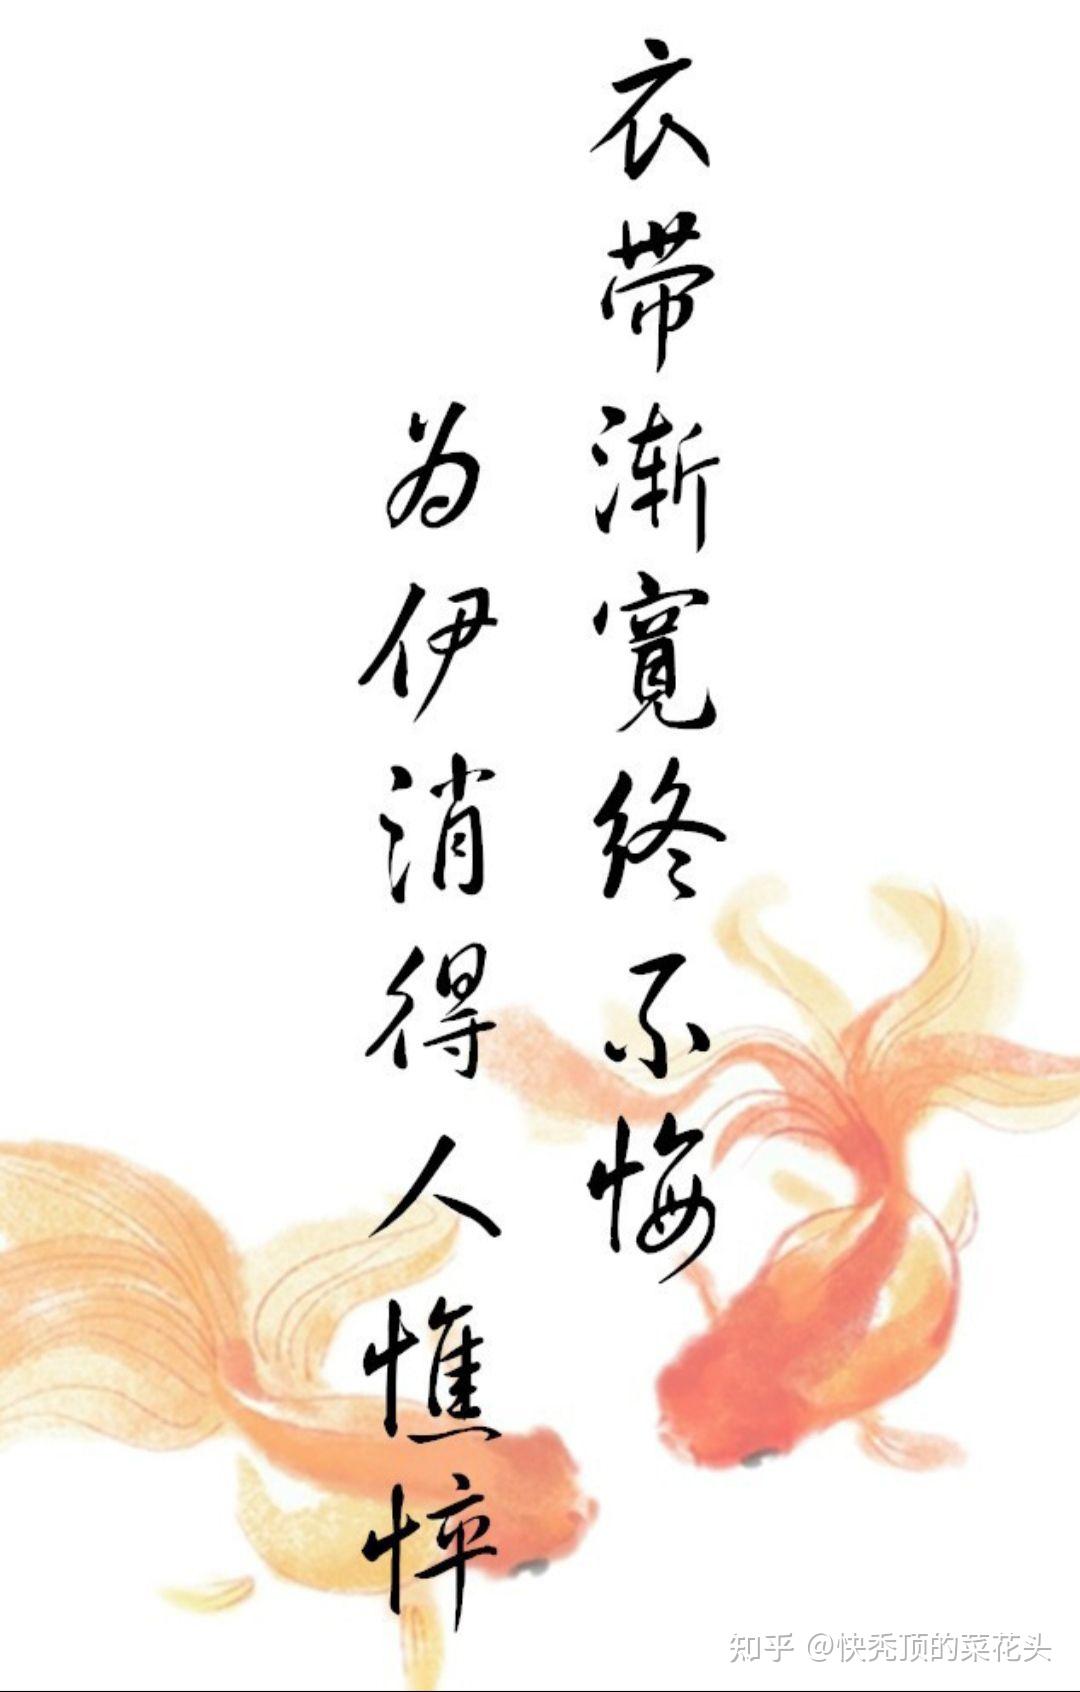 衣带渐寬终不悔
为伊消得人憔悴
知乎 @快秃顶的菜花头